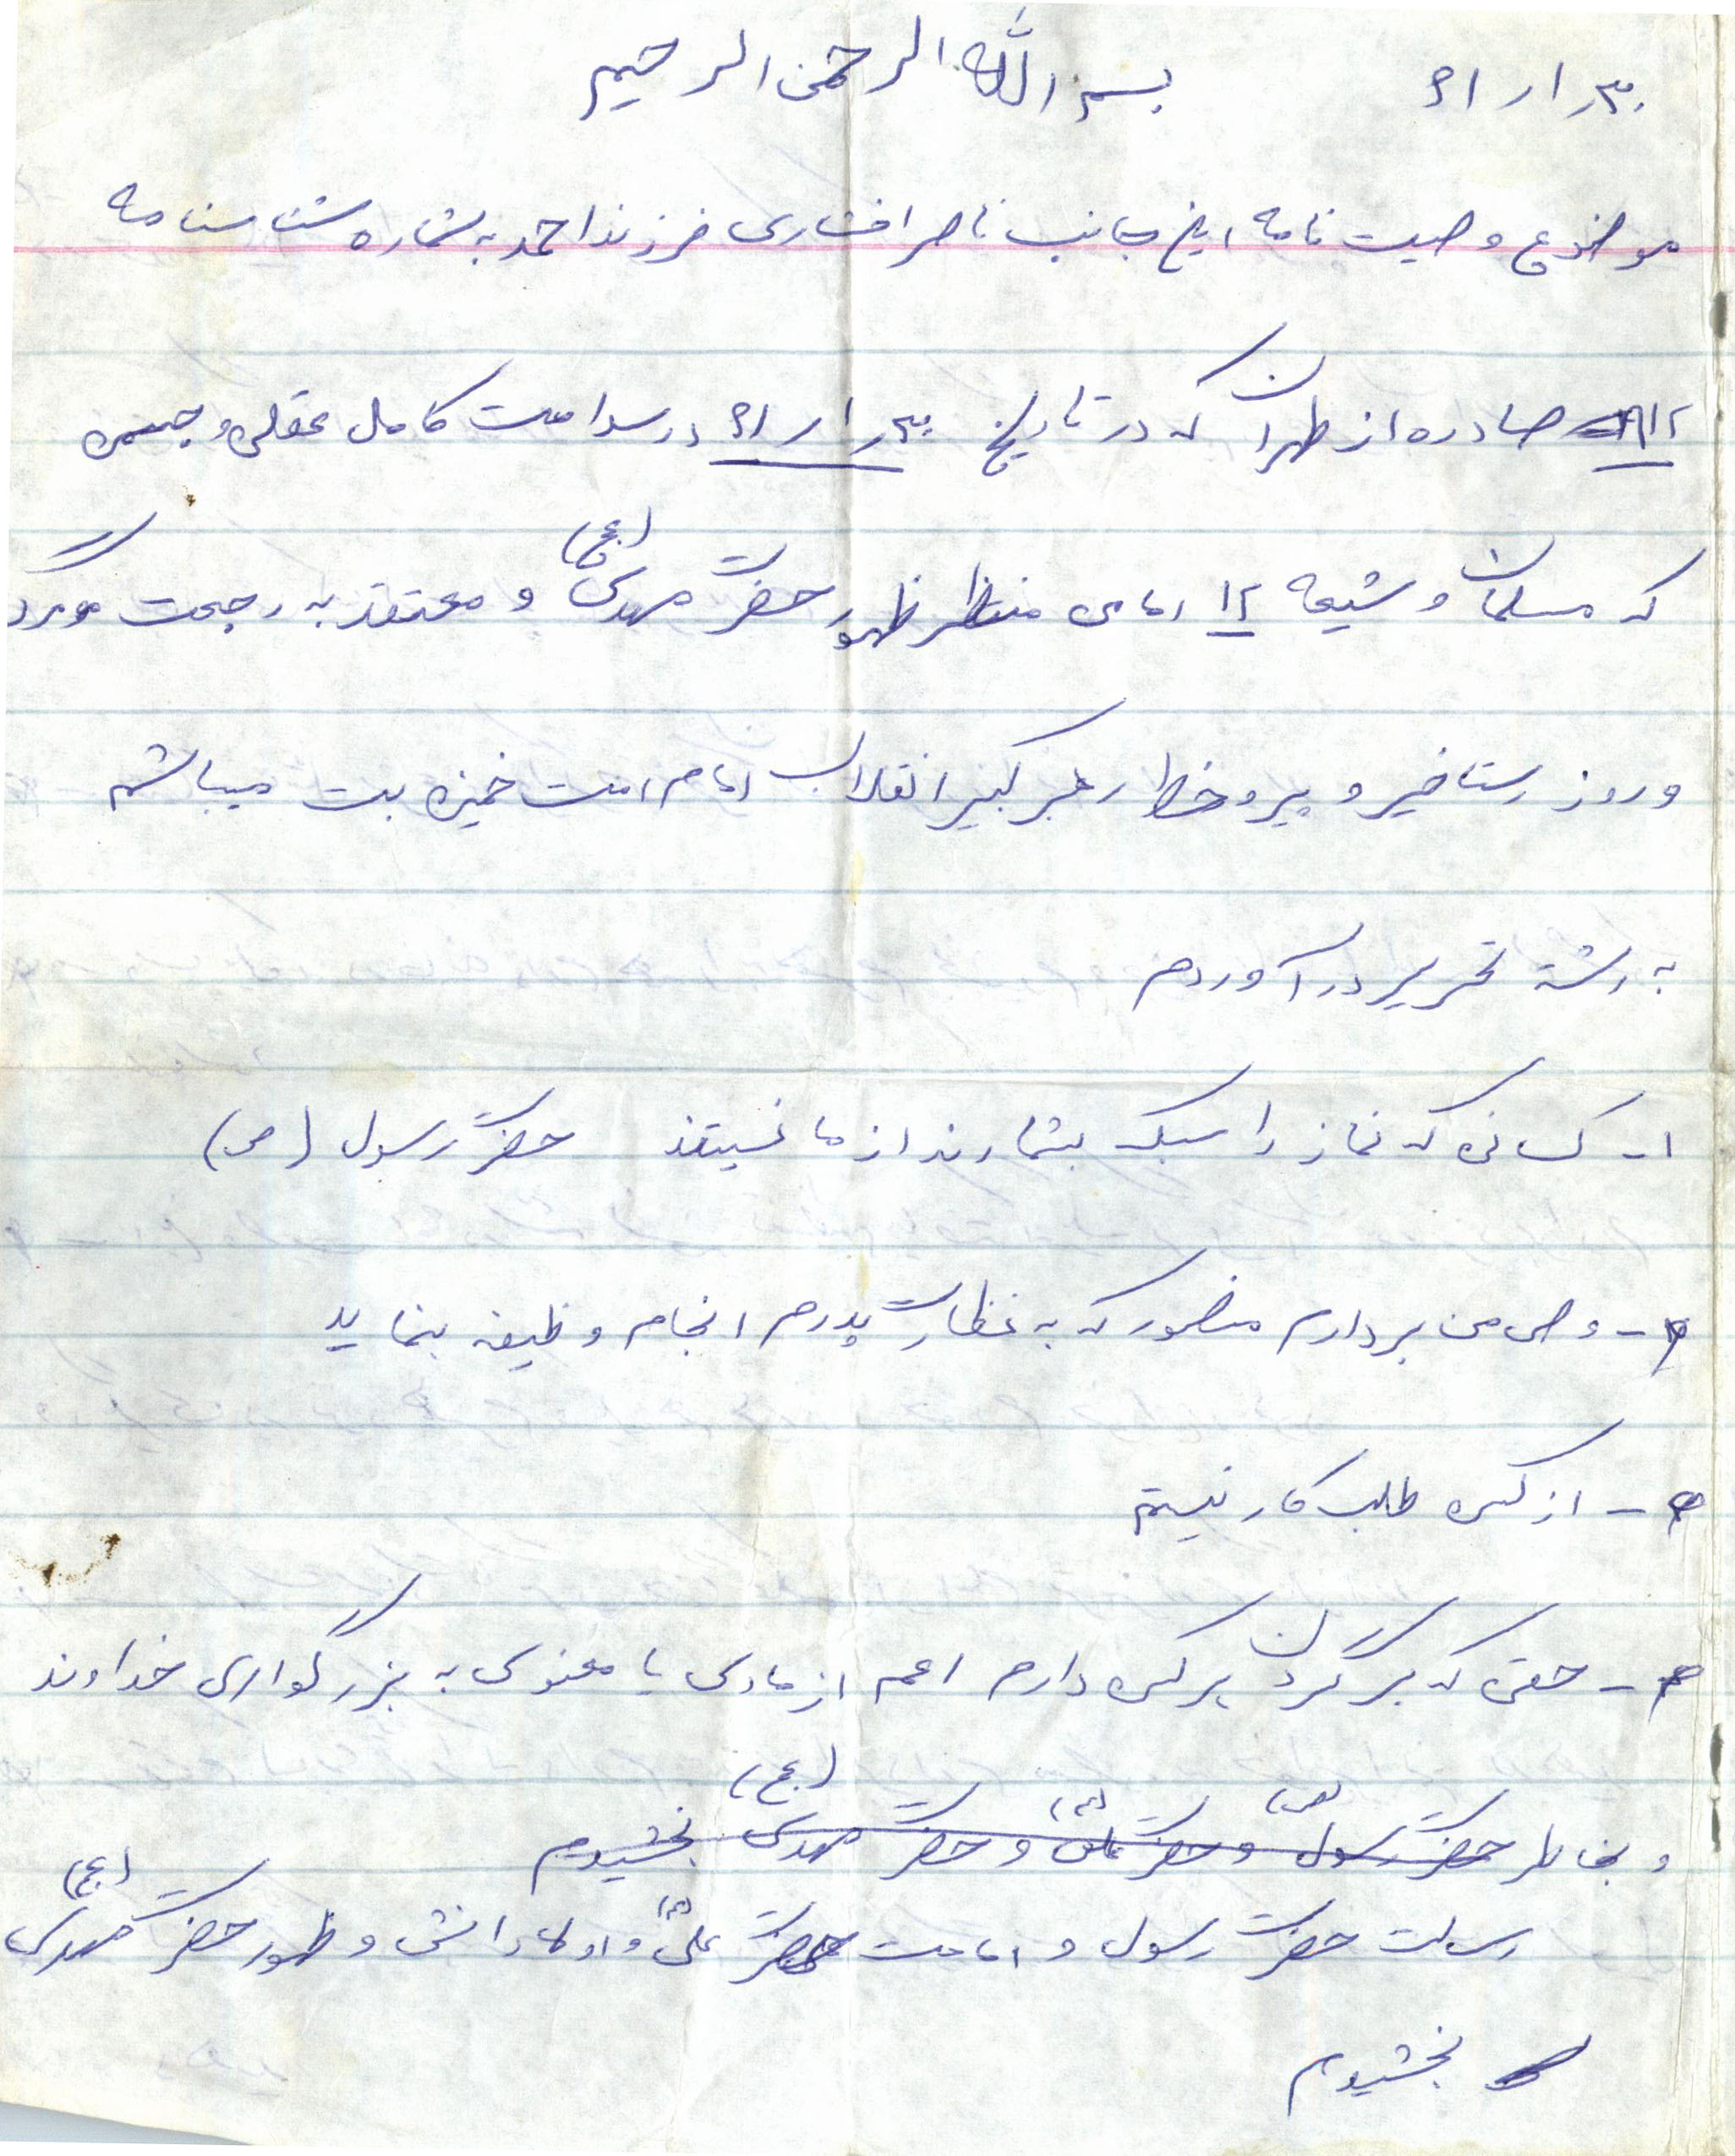 بسم الله الرحمن الرحیم ۳۰/۱/۶۱
موضوع وصیت نامه اینجانب ناصر افشاری فرزند احمد به شماره شناسنامه
صادره از طهران که در تاریخ ۳۰/۱/۶۱ در سلامت کامل عقلی و جسمی
که مسلمان و شیعه ۱۲ امامی منتظر ظهور حضرت مهدی (عج) و معتقد به رجعت و مرگ
و روز رستاخیز و پیرو خط رهبر کبیر انقلاب امام امت خمینی بت میباشم
به رشته تحریر در آوردم
۱- کسانی که نماز را سبک بشمارند از ما نیستند حضرت رسول (ص)
۲- وصی من بردارم منصور که به نظارت پدرم انجام وظیفه بنماید
۳- از کسی طلب کار نیستم
۴- حقی که بر گردن بر کسی دارم اعم از مادی یا معنوی به بزرگواری خداوند
و بخاطر حضرت رسول (ص) و حضرت علی (ع) و حضرت مهدی (عج) بخشیدم
رسالت حضرت رسول و امامت حضرت علی (ع) و اولادانش و ظهور حضرت مهدی (عج)
بخشیدم